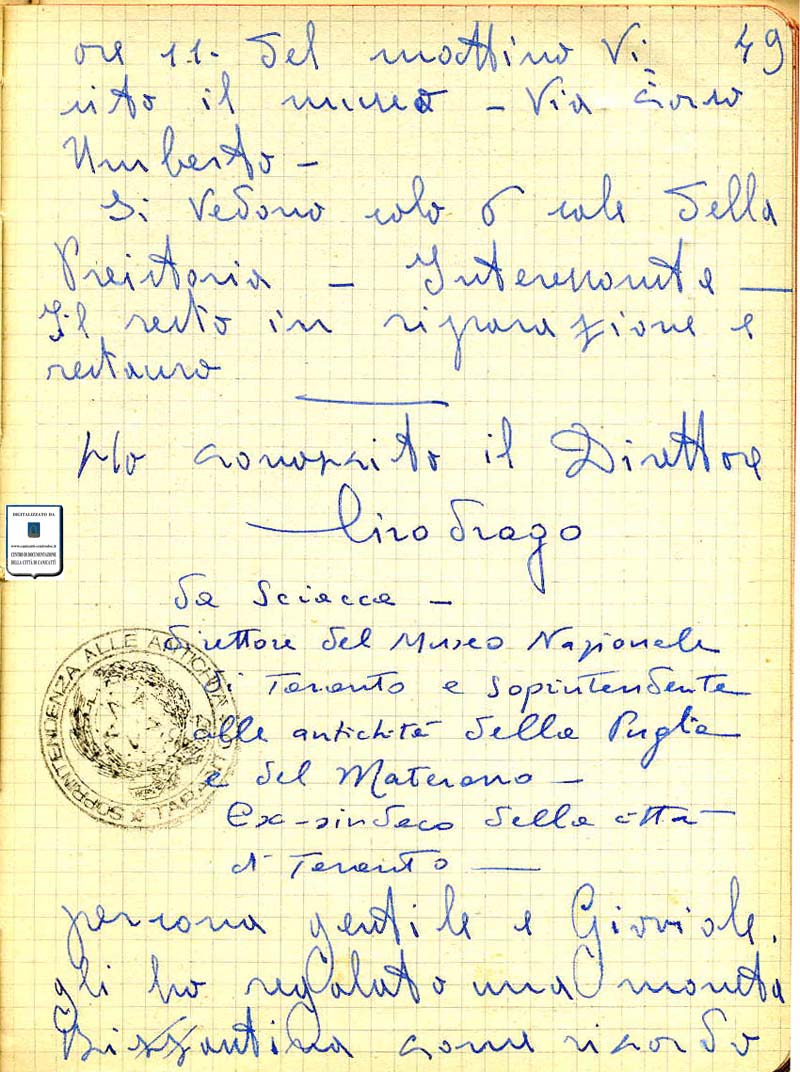 49
ore 11. del mattino Vi
sito il museo – Via Corso
Umberto –
Si vedono solo 6 sale della
Preistoria – Interessante —
Il resto in riparazione e
restauro
Ho conosciuto il Direttore
Ciro Drago
da Sciacca –
direttore del Museo Nazionale
di Taranto e Soprintendente
alle antichità della Puglia
e del Materano –
Ex-sindaco della città
di Taranto —
persona gentile e Gioviale.
gli ho regalato una moneta
Bizzantina come ricordo
SOPRINTENDENZA ALLE ANTICHITÀ
DIGITALIZZATO DA
www.canicatti-centrodoc.it
CENTRO DI DOCUMENTAZIONE
DELLA CITTÀ DI CANICATTÌ